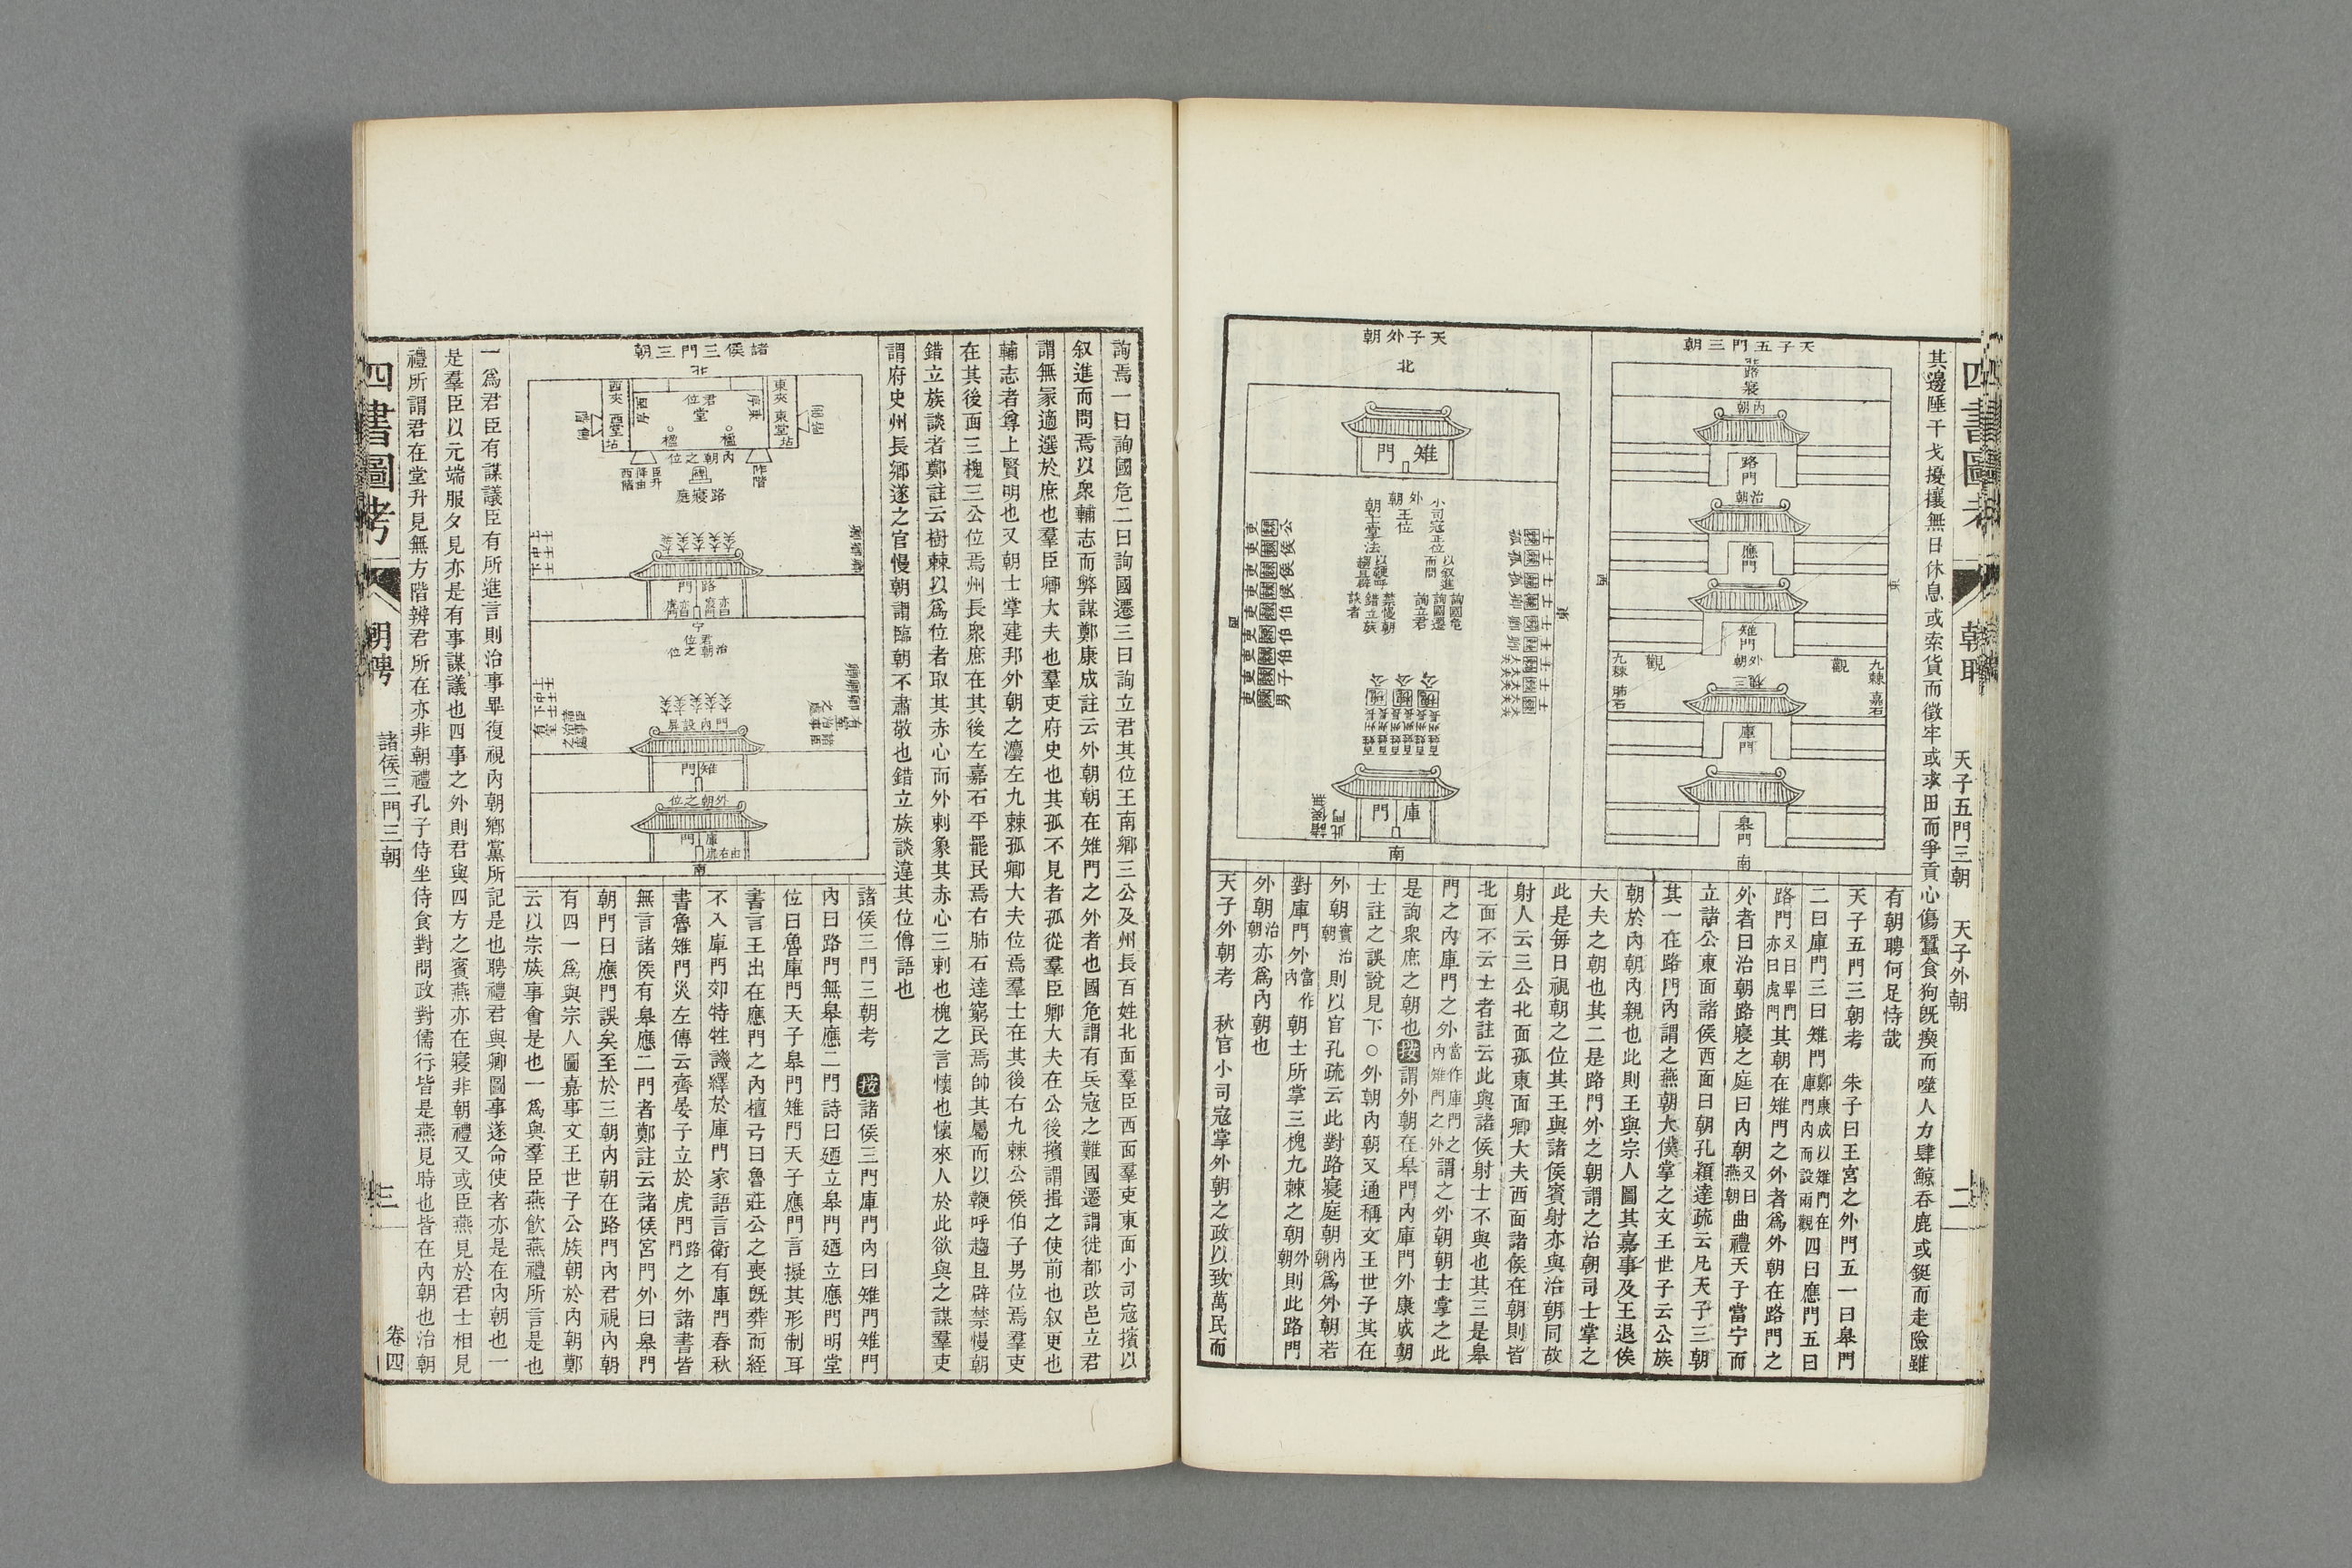 四書圖考
朝聘
天子五門三朝 天子外朝
二
其邊陲干戈擾攘無日休息或索貨而徵牢或求田而爭貢心傷蠶食狗旣瘈而噬人力肆鯨吞鹿或鋌而走險雖
有朝聘何足恃哉
天子五門三朝
路寢
內朝
路門
治朝
應門
雉門
外朝
三槐
觀
觀
九棘 嘉石
九棘 肺石
庫門
皋門
南
東
西
天子五門三朝考 朱子曰王宮之外門五一曰皋門
二曰庫門三曰雉門鄭康成以雉門在庫門內而設兩觀四曰應門五曰
路門又曰畢門亦曰虎門其朝在雉門之外者爲外朝在路門之
外者曰治朝路寢之庭曰內朝又曰燕朝曲禮天子當宁而
立諸公東面諸侯西面曰朝孔穎達疏云凡天子三朝
其一在路門內謂之燕朝大僕掌之文王世子云公族
朝於內朝內親也此則王與宗人圖其嘉事及王退俟
大夫之朝也其二是路門外之朝謂之治朝司士掌之
此是每日視朝之位其王與諸侯賓射亦與治朝同故
射人云三公北面孤東面卿大夫西面諸侯在朝則皆
北面不云士者註云此與諸侯射士不與也其三是皋
門之內庫門之外當作庫門之內雉門之外謂之外朝朝士掌之此
是詢衆庶之朝也按謂外朝在皋門內庫門外康成朝
士註之誤說見下○外朝內朝又通稱文王世子其在
外朝實治朝則以官孔疏云此對路寢庭朝內朝爲外朝若
對庫門外當作內朝士所掌三槐九棘之朝外朝則此路門
外朝治朝亦爲內朝也
天子外朝
北
雉門
外朝
王位
小司寇正位
以叙進而問
詢國危
詢國遷
詢立君
朝士掌法
以鞭呼趨且辟
禁慢朝
錯立族
談者
公侯侯侯侯伯伯伯子男
庫門
此門諸侯無
南
東
天子外朝考 秋官小司寇掌外朝之政以致萬民而
詢焉一曰詢國危二曰詢國遷三曰詢立君其位王南鄉三公及州長百姓北面羣臣西面羣吏東面小司寇擯以
叙進而問焉以衆輔志而弊謀鄭康成註云外朝朝在雉門之外者也國危謂有兵寇之難國遷謂徙都改邑立君
謂無冢適選於庶也羣臣卿大夫也羣吏府史也其孤不見者孤從羣臣卿大夫在公後擯謂揖之使前也叙更也
輔志者尊上賢明也又朝士掌建邦外朝之灋左九棘孤卿大夫位焉羣士在其後右九棘公侯伯子男位焉羣吏
在其後面三槐三公位焉州長衆庶在其後左嘉石平罷民焉右肺石達窮民焉帥其屬而以鞭呼趨且辟禁慢朝
錯立族談者鄭註云樹棘以爲位者取其赤心而外刺象其赤心三刺也槐之言懷也懷來人於此欲與之謀羣吏
謂府史州長鄉遂之官慢朝謂臨朝不肅敬也錯立族談違其位僔語也
諸侯三門三朝
北
東夾 東堂 坫
西夾 西堂 坫
東序
西序
君位
堂
楹
楹
內朝之位
路寢庭
路門
宁
君位
治朝之位
門內設屏
雉門
外朝之位
庫門
由右扉
南
諸侯三門三朝考 按諸侯三門庫門內曰雉門雉門
內曰路門無皋應二門詩曰廼立皋門廼立應門明堂
位曰魯庫門天子皋門雉門天子應門言擬其形制耳
書言王出在應門之內檀弓曰魯莊公之喪旣葬而絰
不入庫門郊特牲譏繹於庫門家語言衛有庫門春秋
書魯雉門災左傳云齊晏子立於虎門路門之外諸書皆
無言諸侯有皋應二門者鄭註云諸侯宮門外曰皋門
朝門曰應門誤矣至於三朝內朝在路門內君視內朝
有四一爲與宗人圖嘉事文王世子公族朝於內朝鄭
云以宗族事會是也一爲與羣臣燕飲燕禮所言是也
一爲君臣有謀議臣有所進言則治事畢復視內朝鄉黨所記是也聘禮君與卿圖事遂命使者亦是在內朝也一
是羣臣以元端服夕見亦是有事謀議也四事之外則君與四方之賓燕亦在寢非朝禮又或臣燕見於君士相見
禮所謂君在堂升見無方階辨君所在亦非朝禮孔子侍坐侍食對問政對儒行皆是燕見時也皆在內朝也治朝
四書圖考
朝聘
諸侯三門三朝
三
卷四